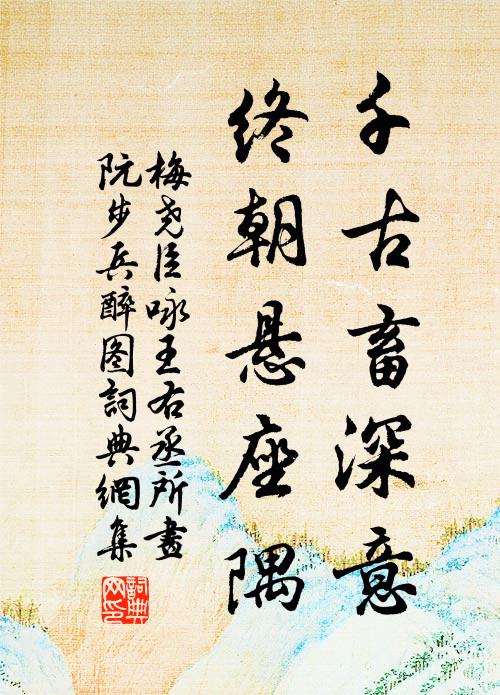 千古畜深意
终朝悬座隅
梅尧臣咏王右丞所畫
阮步兵醉图詞典網集